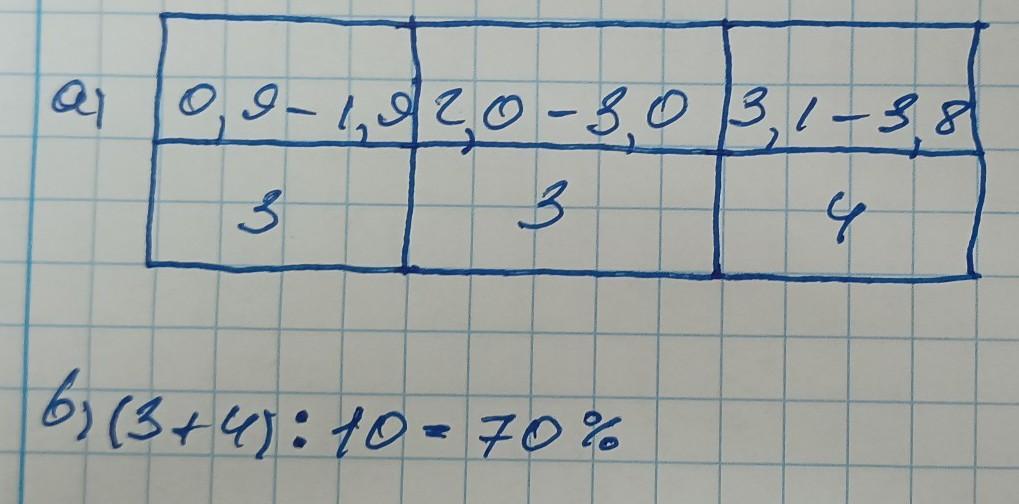 а) 0,9-1,9 2,0-3,0 3,1-3,8
3 3 4
б) (3+4):10=70%